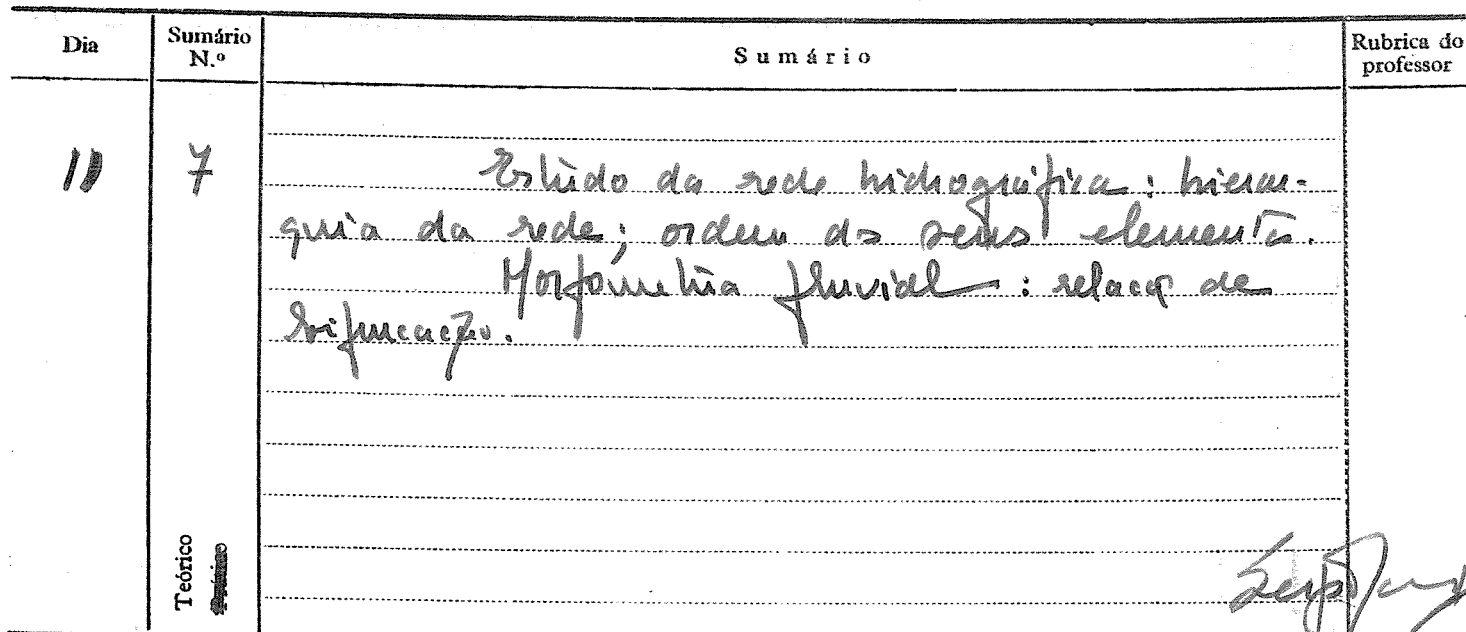 Dia
Sumário N.º
Sumário
Rubrica do professor
11
7
Estudo da rede hidrográfica: hierar-
quia da rede; ordem dos seus elementos.
Morfometria fluvial: relação de
bifurcação.
Teórico